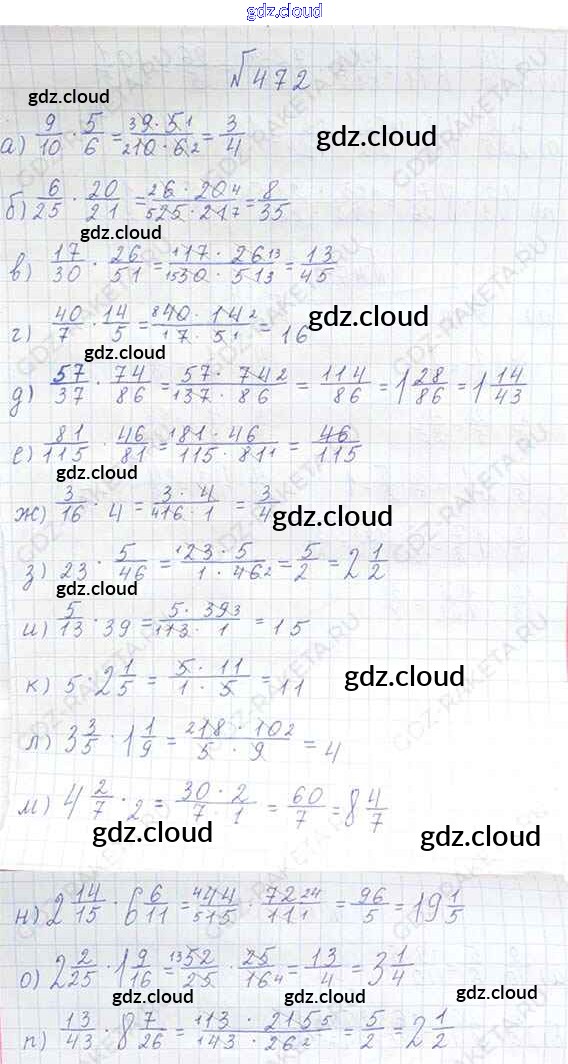 gdz.cloud
№472
gdz.cloud
а) 9/10 · 5/6 = 39·51/210·62 = 3/4
gdz.cloud
б) 6/25 · 20/21 = 26·204/525·217 = 8/35
gdz.cloud
в) 17/30 · 26/51 = 117·2613/1530·513 = 13/45
г) 40/7 · 14/5 = 840·142/17·51 = 16
gdz.cloud
gdz.cloud
д) 57/37 · 74/86 = 57·742/137·86 = 114/86 = 1 28/86 = 1 14/43
е) 81/115 · 46/81 = 181·46/115·811 = 46/115
gdz.cloud
ж) 3/16 · 4 = 3·4/416·1 = 3/4
gdz.cloud
з) 23 · 5/46 = 123·5/1·462 = 5/2 = 2 1/2
gdz.cloud
и) 5/13 · 39 = 5·393/113·1 = 15
к) 5 · 2 1/5 = 5·11/1·5 = 11
gdz.cloud
л) 3 3/5 · 1 1/9 = 218·102/5·9 = 4
м) 4 2/7 · 2 = 30·2/7·1 = 60/7 = 8 4/7
gdz.cloud
gdz.cloud
н) 2 14/15 · 6 6/11 = 444/515 · 7224/111 = 96/5 = 19 1/5
о) 2 2/25 · 1 9/16 = 1352/25 · 25/164 = 13/4 = 3 1/4
gdz.cloud
gdz.cloud
п) 13/43 · 8 7/26 = 113·2155/143·262 = 5/2 = 2 1/2
gdz.cloud